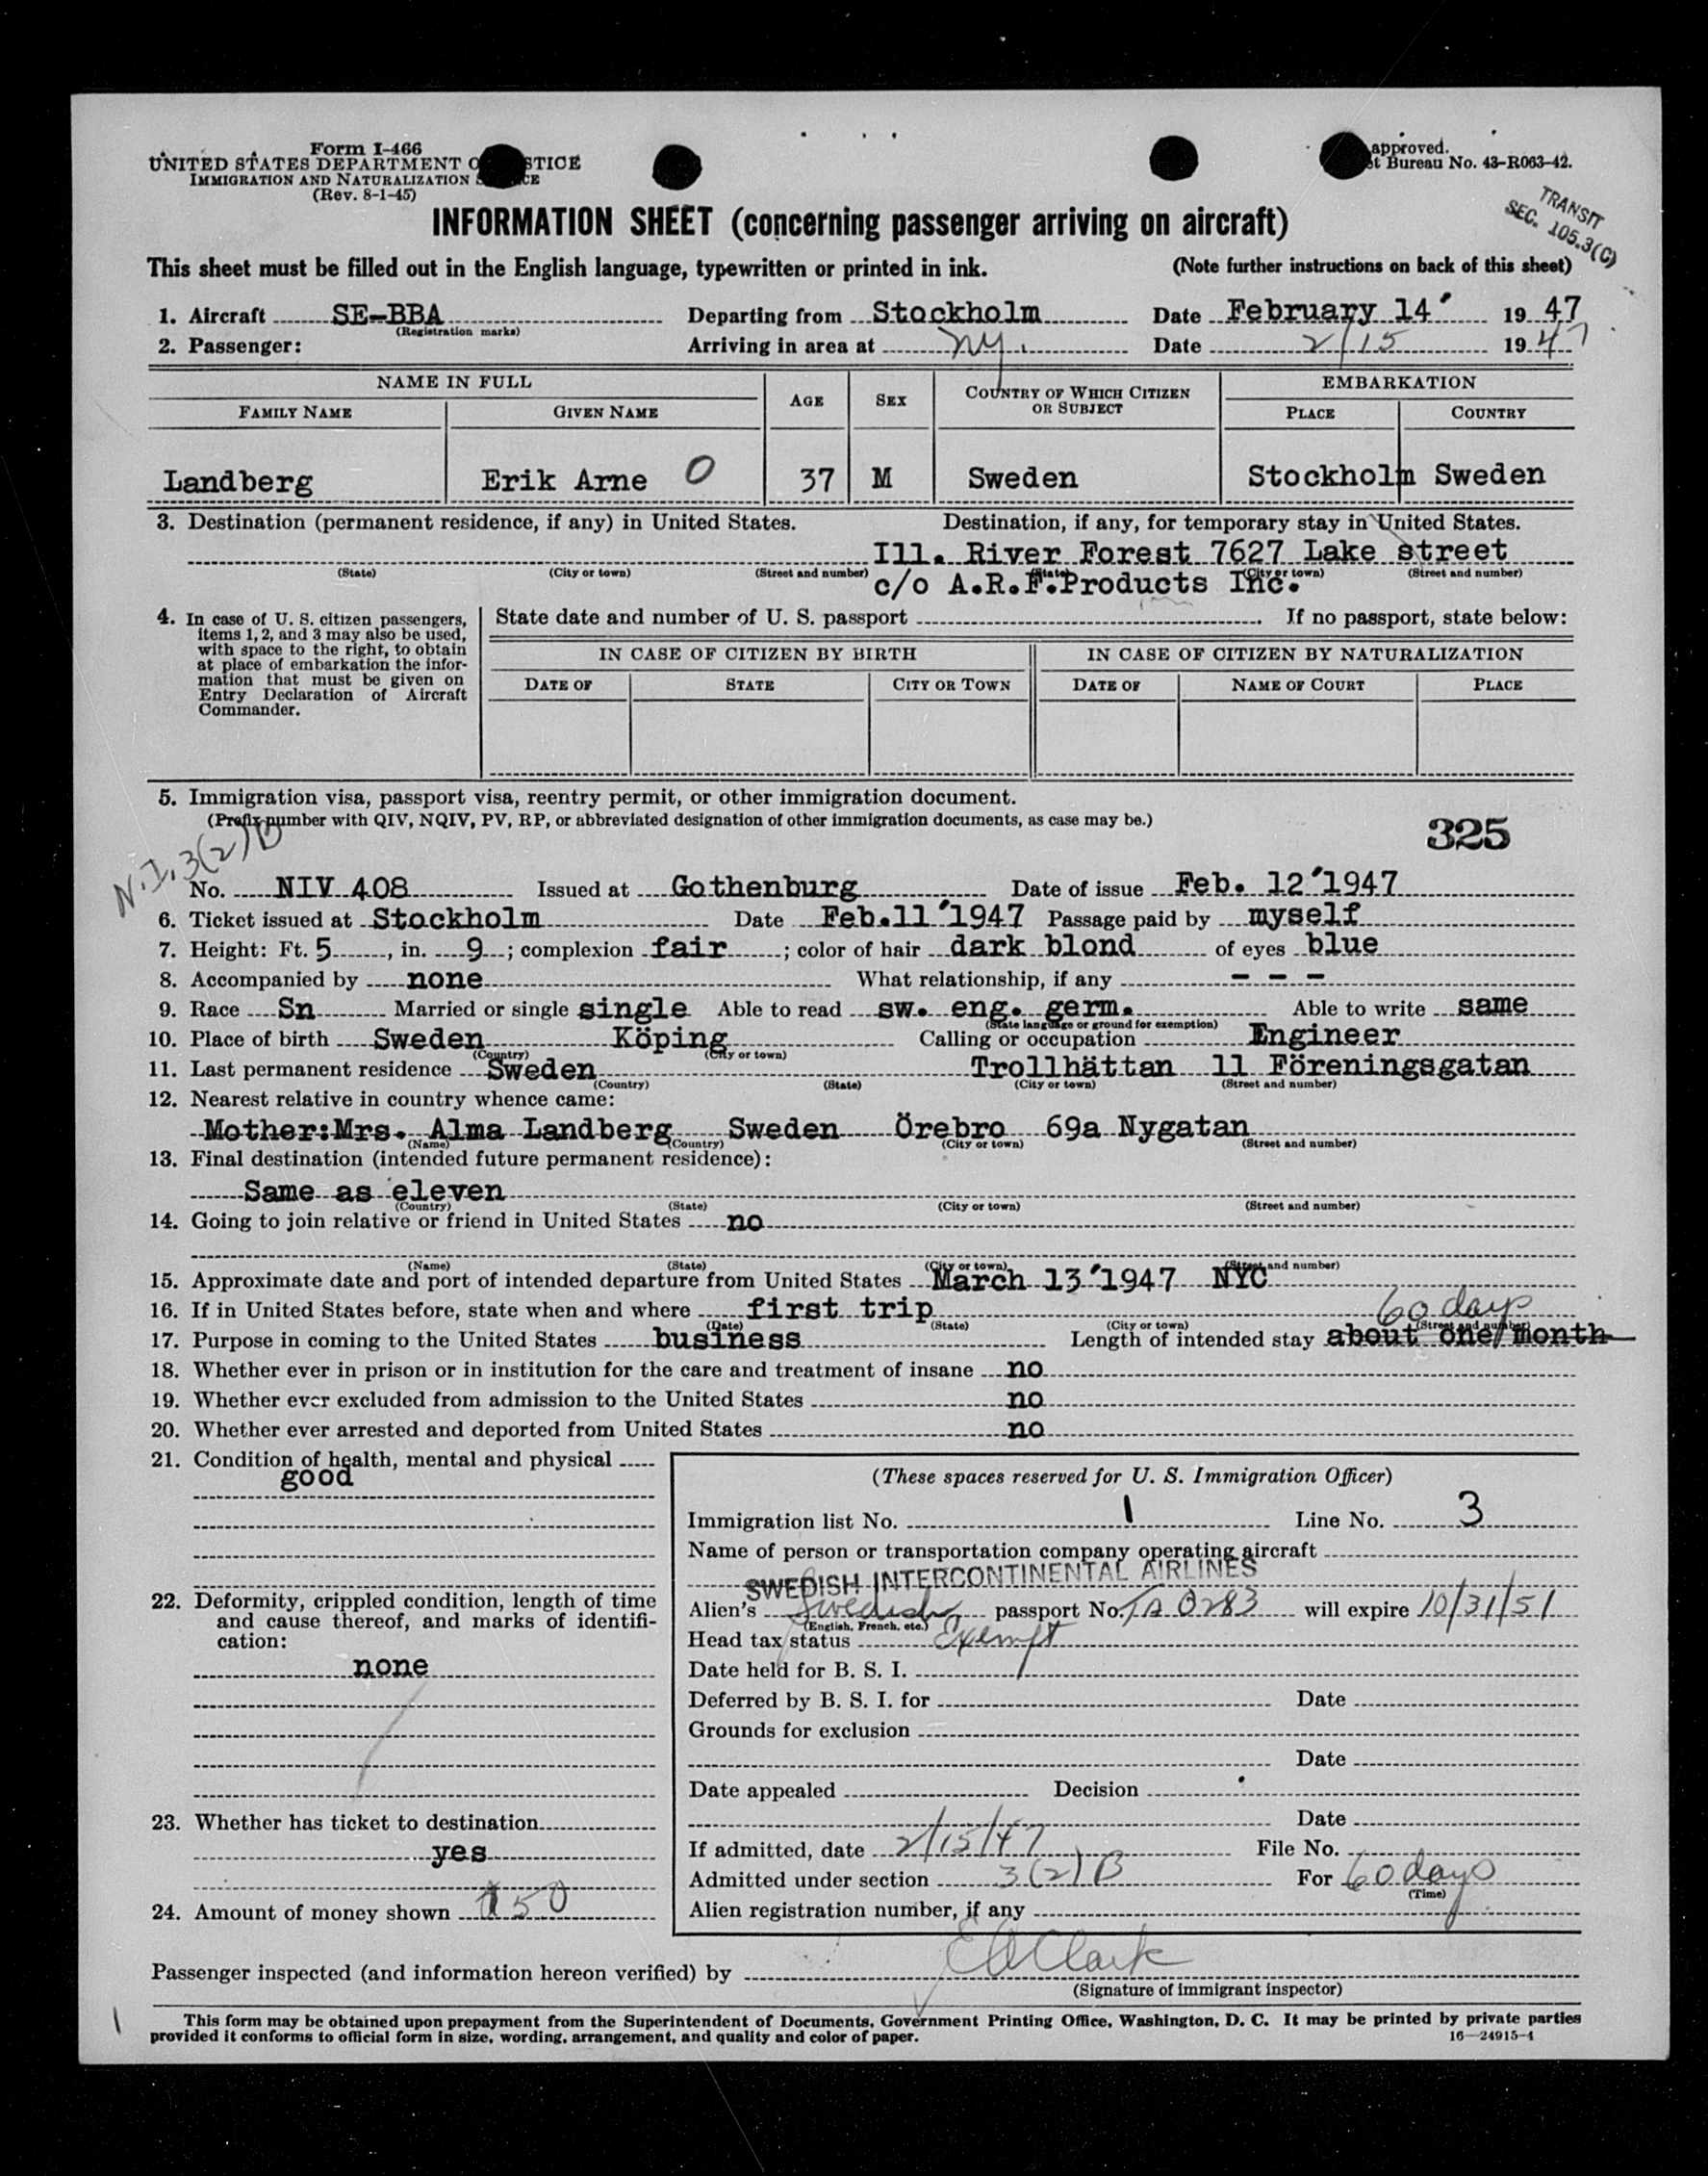 Form I-466
UNITED STATES DEPARTMENT O STICE
IMMIGRATION AND NATURALIZATION S CE
(Rev. 8-1-45)
approved.
t Bureau No. 43-R063-42.
TRANSIT
SEC. 105.3(C)
INFORMATION SHEET (concerning passenger arriving on aircraft)
This sheet must be filled out in the English language, typewritten or printed in ink. (Note further instructions on back of this sheet)
1. Aircraft SE-BBA Departing from Stockholm Date February 14' 19 47
(Registration marks)
2. Passenger: Arriving in area at NY. Date 2/15 19 47
NAME IN FULL AGE SEX COUNTRY OF WHICH CITIZEN OR SUBJECT EMBARKATION
FAMILY NAME GIVEN NAME PLACE COUNTRY
Landberg Erik Arne O 37 M Sweden Stockholm Sweden
3. Destination (permanent residence, if any) in United States. Destination, if any, for temporary stay in United States.
Ill. River Forest 7627 Lake street
(State) (City or town) (Street and number) (State) (City or town) (Street and number)
c/o A.R.F.Products Inc.
4. In case of U. S. citizen passengers, items 1, 2, and 3 may also be used, with space to the right, to obtain at place of embarkation the information that must be given on Entry Declaration of Aircraft Commander.
State date and number of U. S. passport If no passport, state below:
IN CASE OF CITIZEN BY BIRTH IN CASE OF CITIZEN BY NATURALIZATION
DATE OF STATE CITY OR TOWN DATE OF NAME OF COURT PLACE
5. Immigration visa, passport visa, reentry permit, or other immigration document.
(Prefix number with QIV, NQIV, PV, RP, or abbreviated designation of other immigration documents, as case may be.)
325
N.I. 3(2)B
No. NIV 408 Issued at Gothenburg Date of issue Feb. 12'1947
6. Ticket issued at Stockholm Date Feb.11'1947 Passage paid by myself
7. Height: Ft. 5, in. 9; complexion fair; color of hair dark blond of eyes blue
8. Accompanied by none What relationship, if any - - -
9. Race Sn Married or single single Able to read sw. eng. germ. Able to write same
(State language or ground for exemption)
10. Place of birth Sweden Köping Calling or occupation Engineer
(Country) (City or town)
11. Last permanent residence Sweden Trollhättan 11 Föreningsgatan
(Country) (State) (City or town) (Street and number)
12. Nearest relative in country whence came:
Mother:Mrs. Alma Landberg Sweden Örebro 69a Nygatan
(Name) (Country) (City or town) (Street and number)
13. Final destination (intended future permanent residence):
Same as eleven
(Country) (State) (City or town) (Street and number)
14. Going to join relative or friend in United States no
(Name) (State) (City or town) (Street and number)
15. Approximate date and port of intended departure from United States March 13'1947 NYC
16. If in United States before, state when and where first trip
(Date) (State) (City or town) (Street and number)
60 days
17. Purpose in coming to the United States business Length of intended stay about one month
18. Whether ever in prison or in institution for the care and treatment of insane no
19. Whether ever excluded from admission to the United States no
20. Whether ever arrested and deported from United States no
21. Condition of health, mental and physical
good
22. Deformity, crippled condition, length of time and cause thereof, and marks of identification:
none
23. Whether has ticket to destination
yes
24. Amount of money shown 150
(These spaces reserved for U. S. Immigration Officer)
Immigration list No. 1 Line No. 3
Name of person or transportation company operating aircraft
SWEDISH INTERCONTINENTAL AIRLINES
Alien's Swedish passport No. TA 0283 will expire 10/31/51
(English, French, etc.)
Head tax status Exempt
Date held for B. S. I.
Deferred by B. S. I. for Date
Grounds for exclusion
Date
Date appealed Decision
Date
If admitted, date 2/15/47 File No.
Admitted under section 3(2)B For 60 days
(Time)
Alien registration number, if any
Passenger inspected (and information hereon verified) by E A Clark
(Signature of immigrant inspector)
This form may be obtained upon prepayment from the Superintendent of Documents, Government Printing Office, Washington, D. C. It may be printed by private parties
provided it conforms to official form in size, wording, arrangement, and quality and color of paper. 16—24915-1